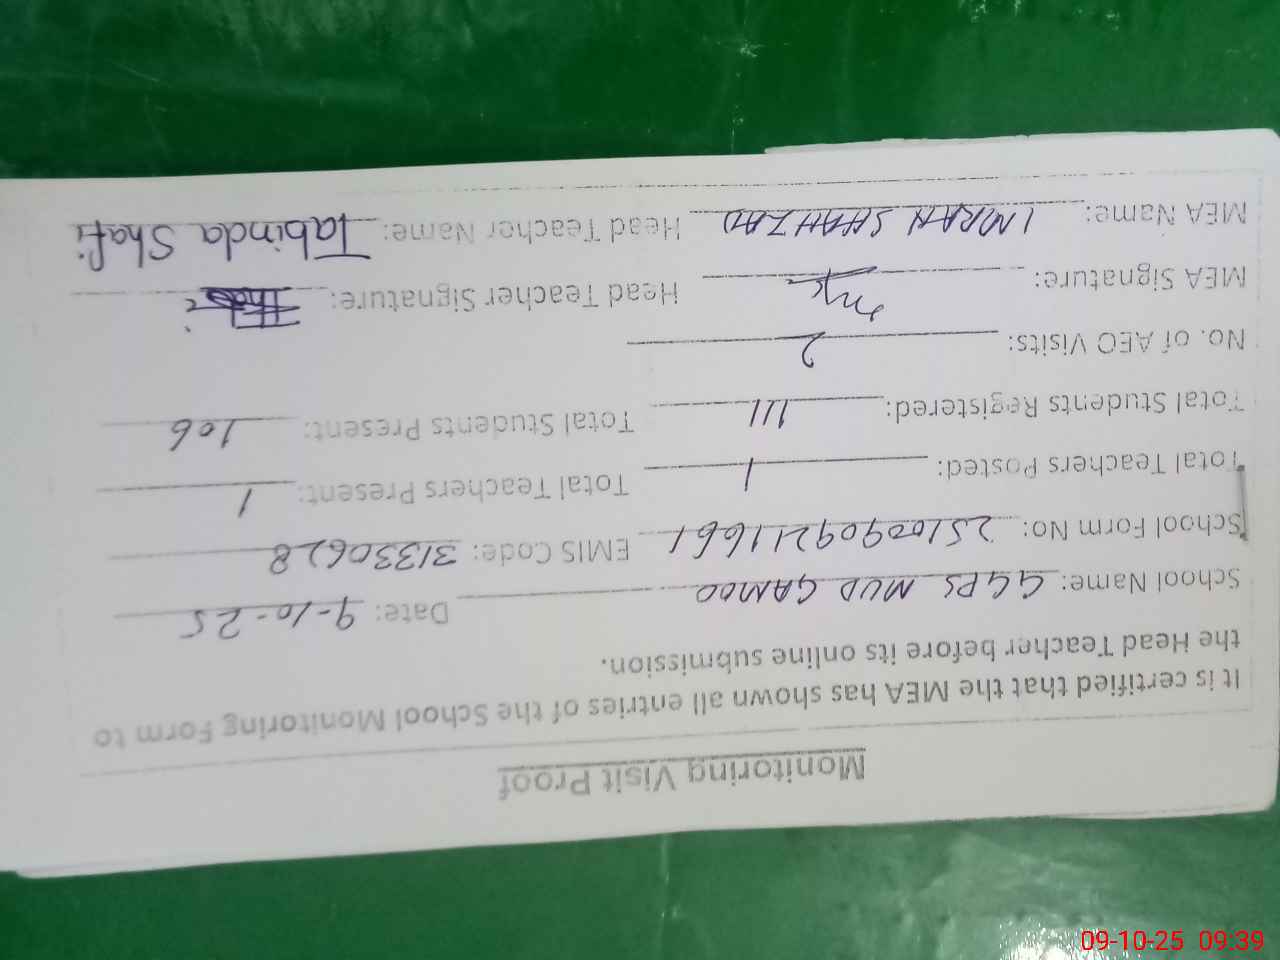 Monitoring Visit Proof
It is certified that the MEA has shown all entries of the School Monitoring Form to
the Head Teacher before its online submission.
School Name: GGPS MUD GAMOO Date: 9-10-25
School Form No: 25100909211661 EMIS Code: 31330628
Total Teachers Posted: 1 Total Teachers Present: 1
Total Students Registered: 111 Total Students Present: 106
No. of AEO Visits: 2
MEA Signature: Head Teacher Signature:
MEA Name: IMRAN SHAHZAD Head Teacher Name: Tabinda Shafi
09-10-25 09:39